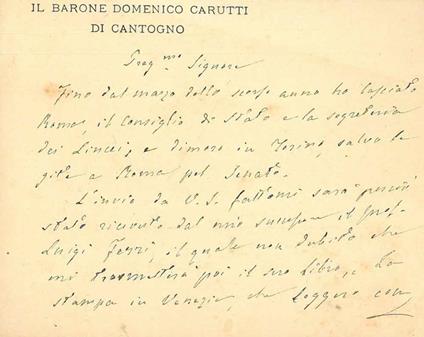 IL BARONE DOMENICO CARUTTI
DI CANTOGNO
Preg.mo Signore
Fino dal marzo dello scorso anno ho lasciato
Roma, il Consiglio di Stato e la segreteria
dei Lincei, e dimoro in Torino, salvo le
gite a Roma pel Senato.
L'invio da V. S. fattomi sarà perciò
stato ricevuto dal mio successore il Prof.
Luigi Ferri, il quale non dubito che
mi trasmetterà poi il suo Libro, La
stampa in Venezia, che leggerò con